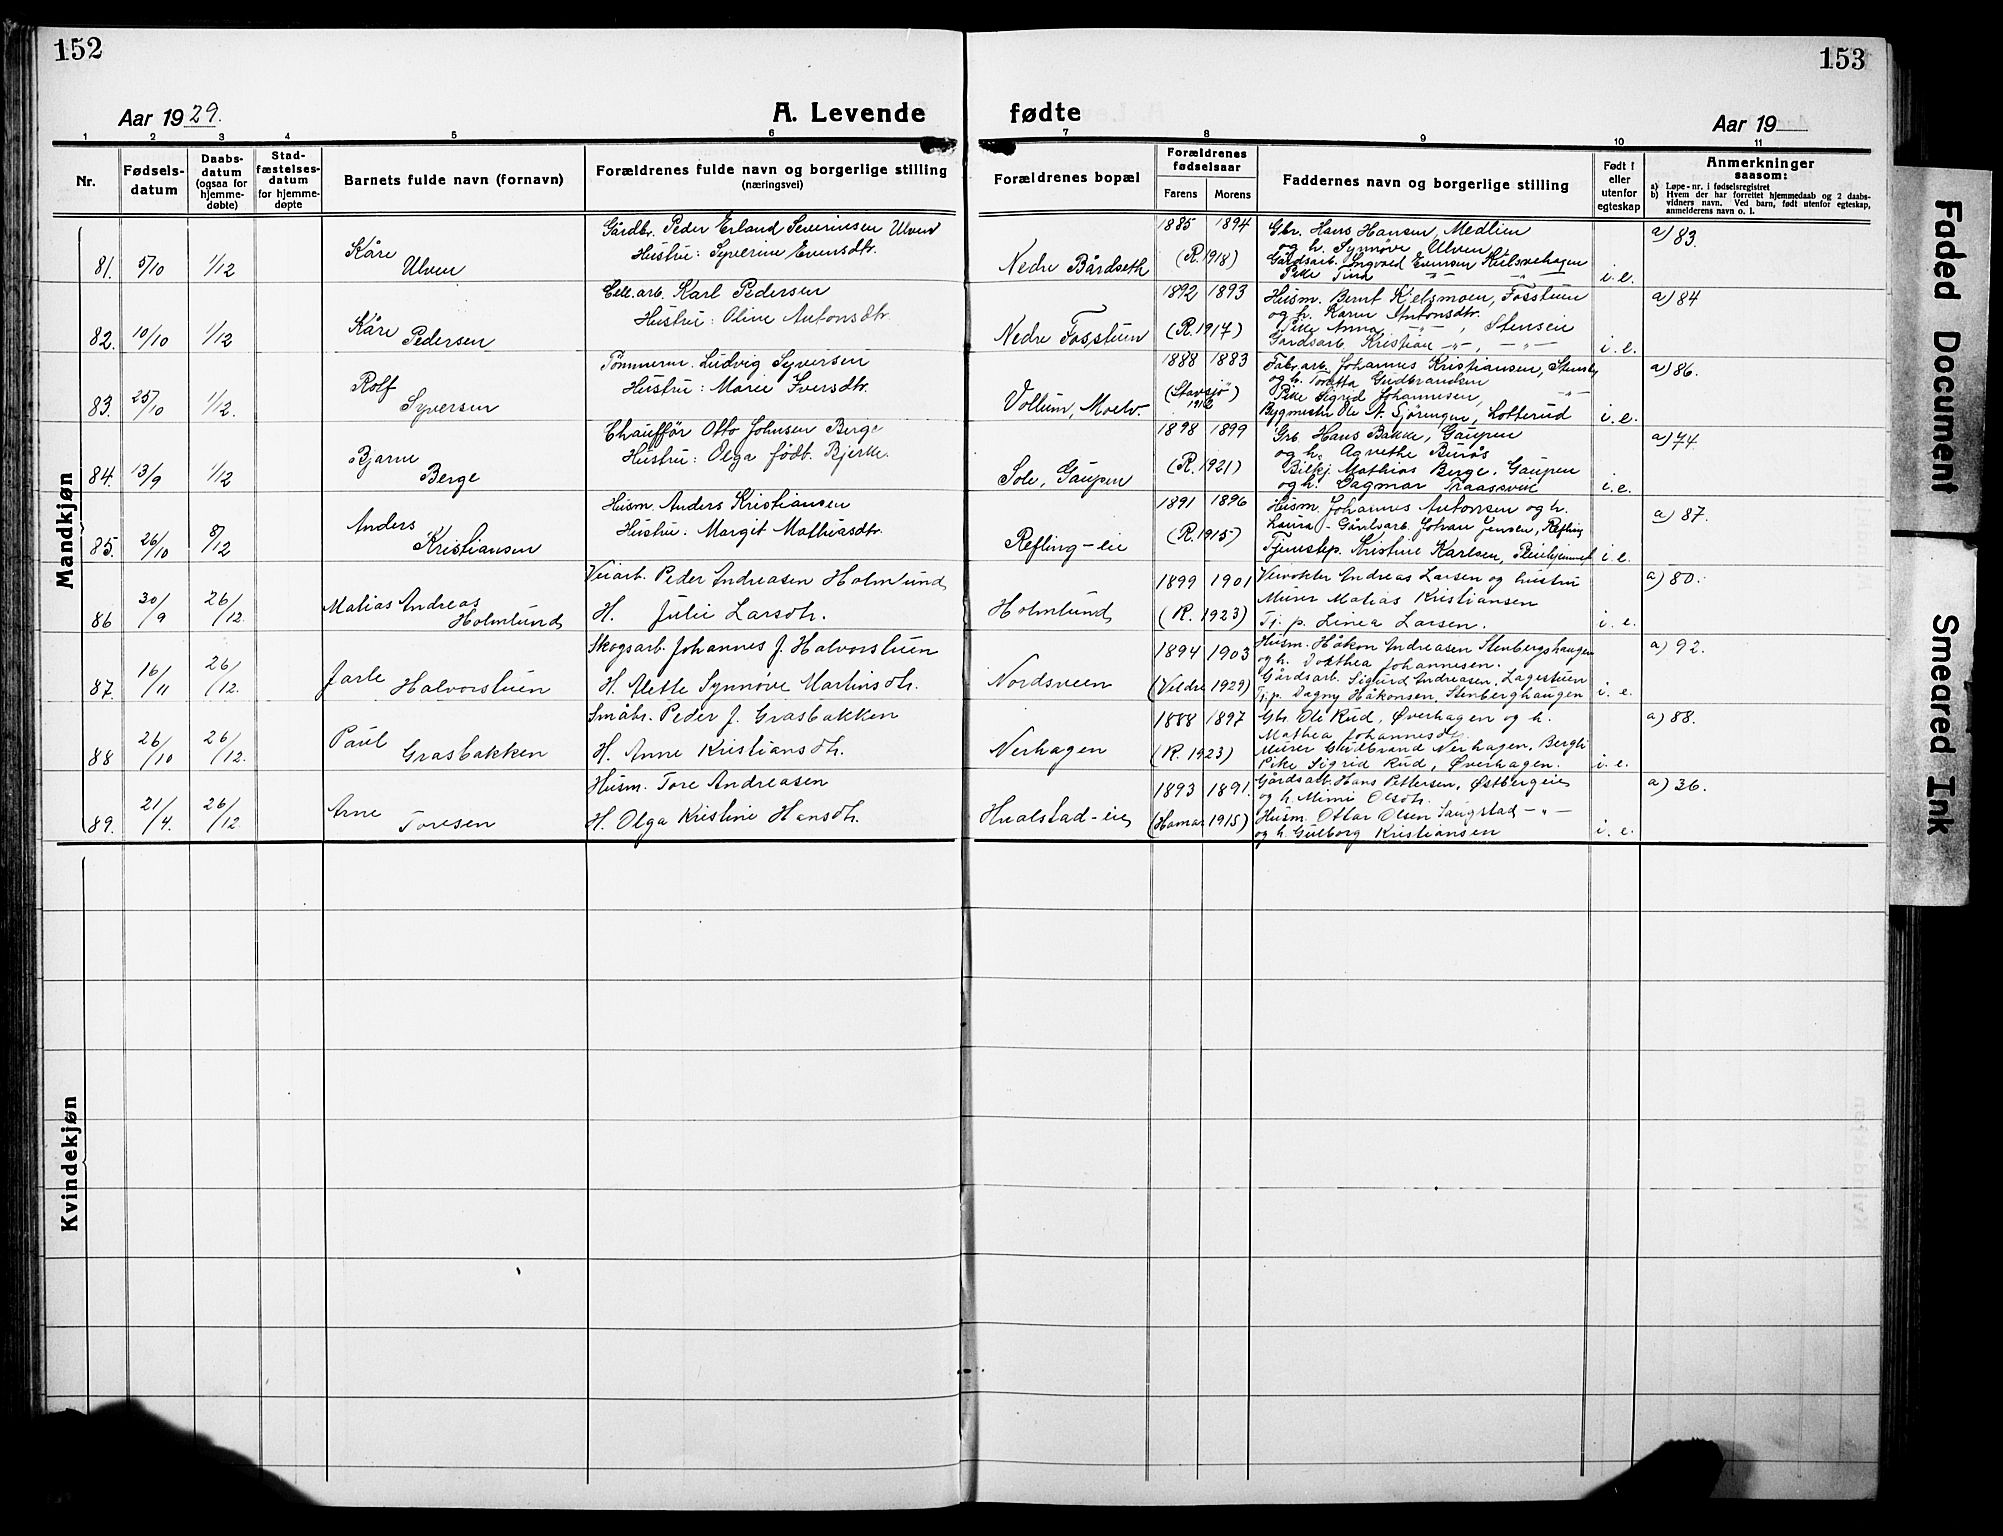 152
153
Aar 1929.
A. Levende fødte
Aar 19
1 2 3 4 5 6 7 8 9 10 11
Nr.
Fødsels-
datum
Daabs-
datum
(ogsaa for
hjemme-
døbte)
Stad-
fæstelses-
datum
for hjemme-
døpte
Barnets fulde navn (fornavn)
Forældrenes fulde navn og borgerlige stilling
(næringsvei)
Forældrenes bopæl
Forældrenes
fødselsaar
Farens Morens
Faddernes navn og borgerlige stilling
Født i
eller
utenfor
egteskap
Anmerkninger
saasom:
a) Løpe-nr. i fødselsregistret
b) Hvem der har forrettet hjemmedaab og 2 daabs-
vidners navn. Ved barn, født utenfor egteskap,
anmelderens navn o. l.
Mandkjøn
81. 5/10 1/12
Kåre
Ulven
Gårdbr. Peder Erland Severinsen Ulven
Hustru: Syverine Evensdtr.
Nedre Bårdseth
1885 1894
(R. 1918)
Gbr. Hans Hansen, Medlien
og h. Synnøve Ulven
Gårdsarb. Ingvald Evensen
Pike Tina -"- -"-
i. e.
a) 83.
82. 10/10 1/12
Kåre
Pedersen
Cell. arb. Karl Pedersen
Hustru: Oline Antonsdtr.
Nedre Fosstuen
1892 1893
(R. 1917)
Husm. Bernt Kjelsmoen, Fosstuen
og h. Karen Antonsdtr.
Pike Anna -"-, Stensein
Gårdsarb. Kristian -"-, -"-
i. e.
a) 84
83. 25/10 1/12.
Rolf
Syversen
Tømmerm. Ludvig Syversen
Hustru: Marie Iversdtr.
Vollum, Moelv.
1888 1883
(Stavsjö)
1912
Fabr. arb. Johannes Kristiansen, Stensby
og h. Toretta Gudbrandsen
Pike Sigrid Johannesen, -"-
Bygmester Ole A. Sjöringen, Lotterud
i. e.
a) 86.
84. 13/9 1/12
Bjarne
Berge
Chauffør Otto Johnsen Berge
Hustru: Olga født. Bjerke.
Sole, Gaupen
1898 1899
(R. 1921)
Grb. Hans Bakke, Gaupen
og h. Agnethe Burås
Bilkj. Mathias Berge, Gaupen
og h. Dagmar Traasvik
i. e.
a) 74.
85. 26/10 8/12
Anders
Kristiansen
Husm. Anders Kristiansen
Hustru: Margit Mathiasdtr.
Refling-eie
1891 1896
(R. 1915)
Husm. Johannes Antonsen og h.
Laura - Gårdsarb. Johan Jensen, Refling
Tjenstep. Kristine Karlsen, Pleiehjemmet
i. e.
a) 87.
86 30/9 26/12.
Matias Andreas
Holmlund
Veiarb. Peder Andreasen Holmlund
H. Julie Larsdtr.
Holmlund
1899 1901
(R. 1923)
Veivokter Andreas Larsen og hustru
Murer Matias Kristiansen
Tj. p. Linea Larsen.
i. e.
a) 80.
87. 16/11 26/12.
Jarle
Halvorstuen
Skogsarb. Johannes J. Halvorstuen
H. Alette Synnøve Martinsdtr.
Nordsveen
1894 1903
(Veldre 1929)
Husm. Håkon Andreasen Stenbergshaugen
og h. Dorthea Johannesen.
Gårdsarb. Sigurd Andreasen, Lagestuen
Tj. p. Dagny Håkonsen, Stenberghaugen
i. e.
a) 92.
88 26/10 26/12.
Paul
Grasbakken
Småbr. Peder J. Grasbakken
H. Anne Kristiansdtr.
Nerhagen
1888 1897
(R. 1923)
Gbr. Ole Rud, Øverhagen og h.
Mathea Johannesdtr.
Murer Gudbrand Nerhagen, Bergli
Pike Sigrid Rud, Øverhagen.
i. e.
a) 88.
89. 21/4. 26/12.
Arne
Toresen
Husm. Tore Andreasen
H. Olga Kristine Hansdtr.
Hvalstad-eie
1893 1891.
(Hamar 1915)
Gårdsarb. Hans Pettersen, Østbergeie
og h. Mimi Olsdtr.
Husm. Ottar Olsen Taugstad -"-
og h. Gulborg Kristiansen
i. e.
a) 36.
Kvindekjøn
Faded Document
Smeared Ink